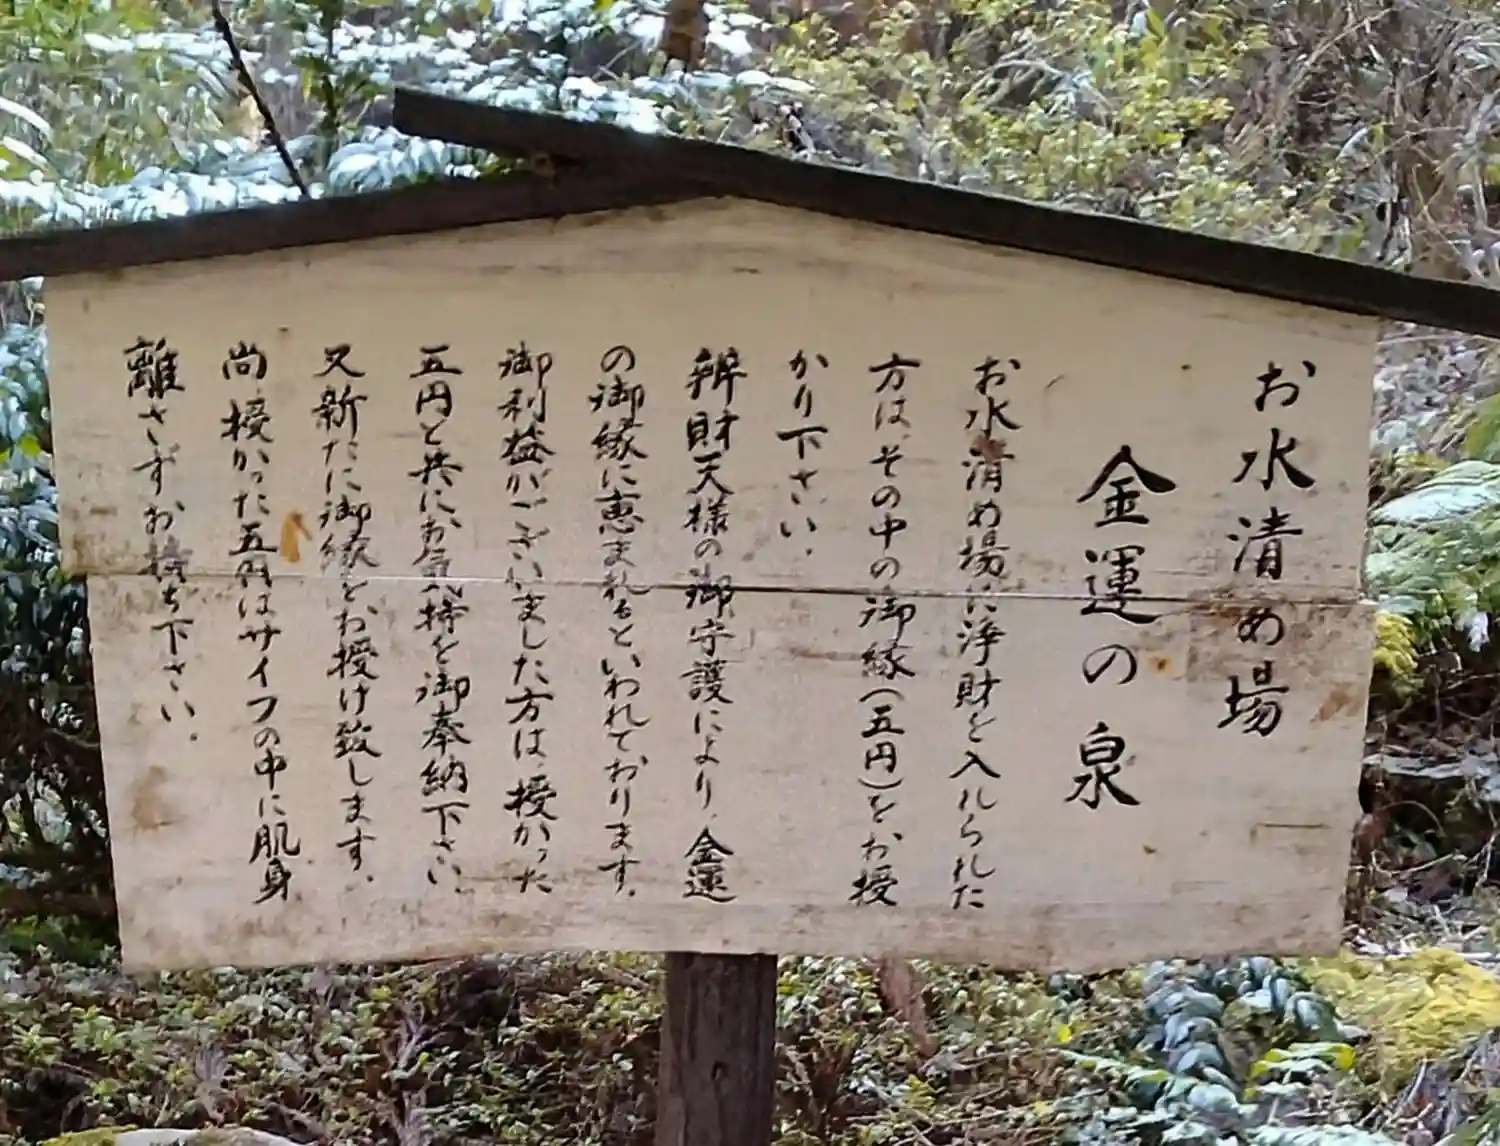 お水清め場
金運の泉
お水清め場に浄財を入れられた
方は、その中の御縁(五円)をお授
かり下さい。
辨財天様の御守護により、金運
の御縁に恵まれるといわれております。
御利益がございました方は、授かった
五円と共にお気持を御奉納下さい。
又新たに御縁をお授け致します。
尚、授かった五円はサイフの中に肌身
離さずお持ち下さい。